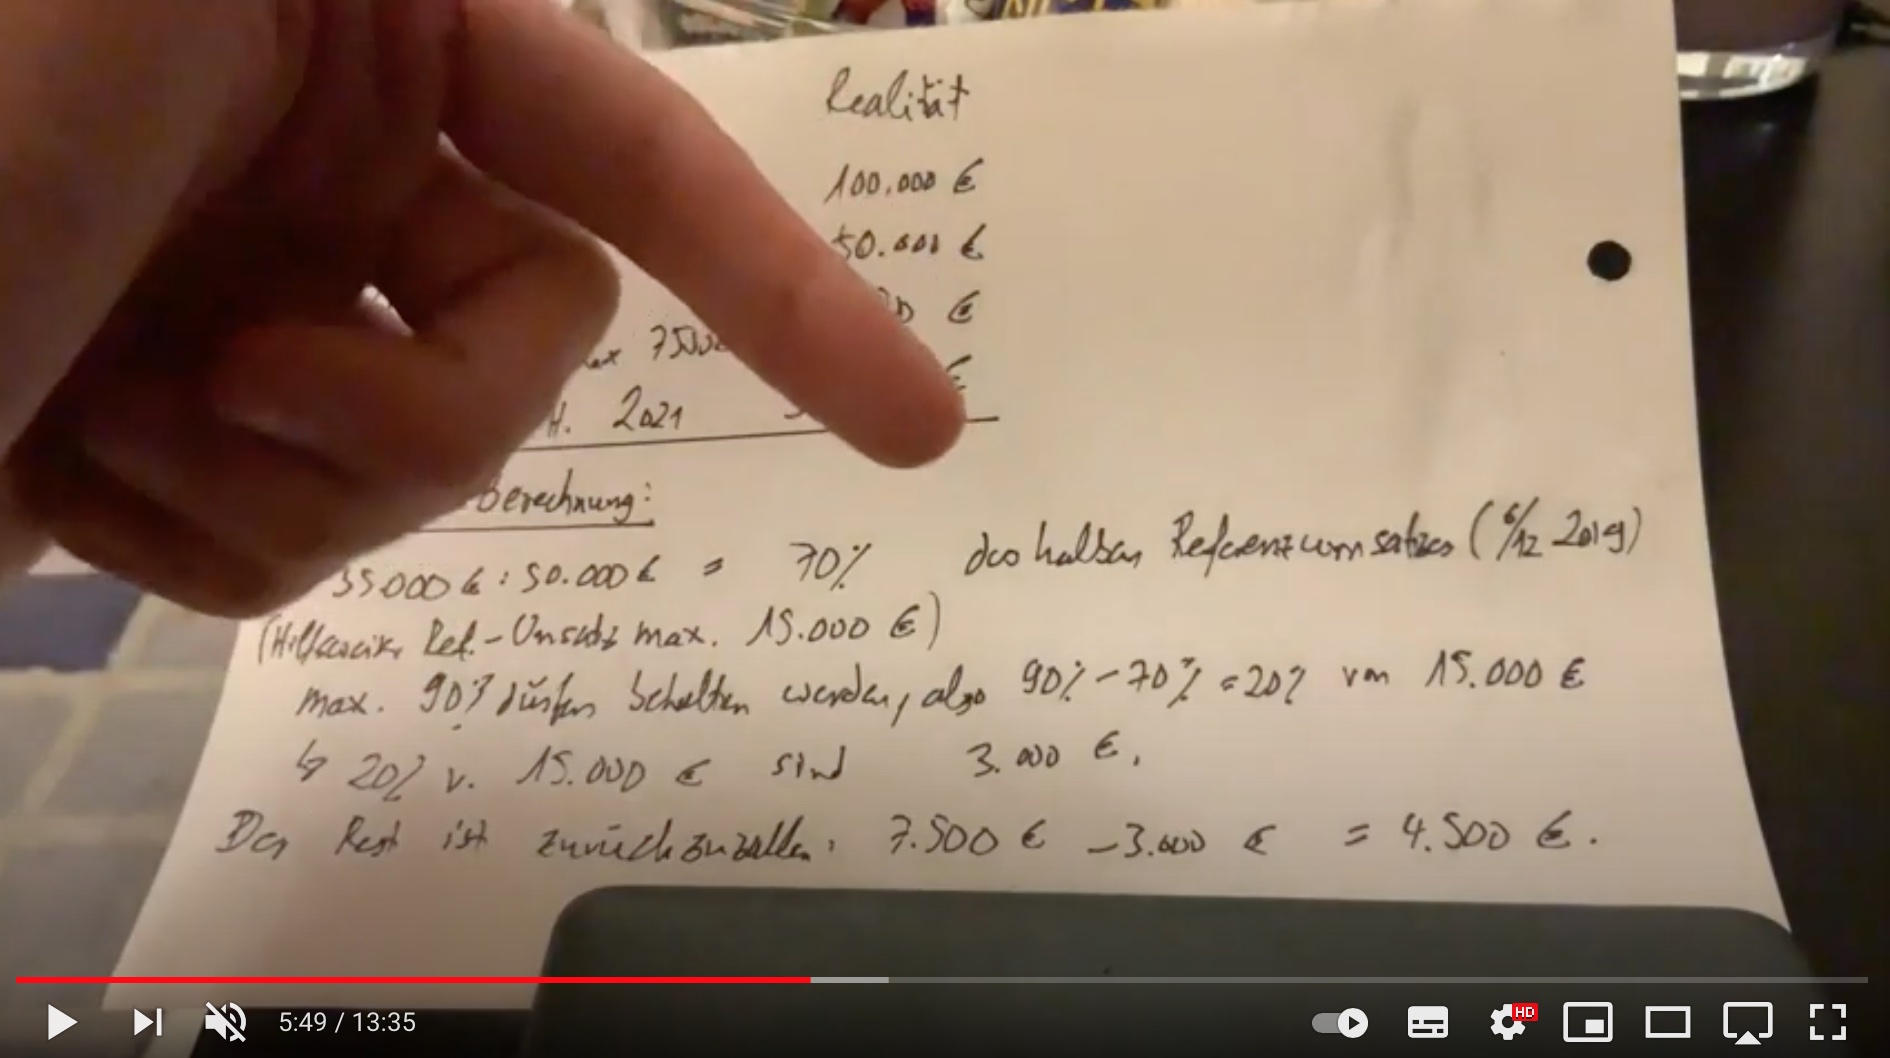 Realität
100.000 €
50.000 €
€
7500
€
H. 2021
Berechnung:
35000 € : 50.000 € = 70% des halben Referenzumsatzes (6/12 2019)
Ref.-Umsatz max. 15.000 €)
max. 90% dürfen behalten werden, also 90% - 70% = 20% von 15.000 €
↳ 20% v. 15.000 € sind 3.000 €.
Der Rest ist zurückzuzahlen: 7.500 € - 3.000 € = 4.500 €.
5:49 / 13:35
HD